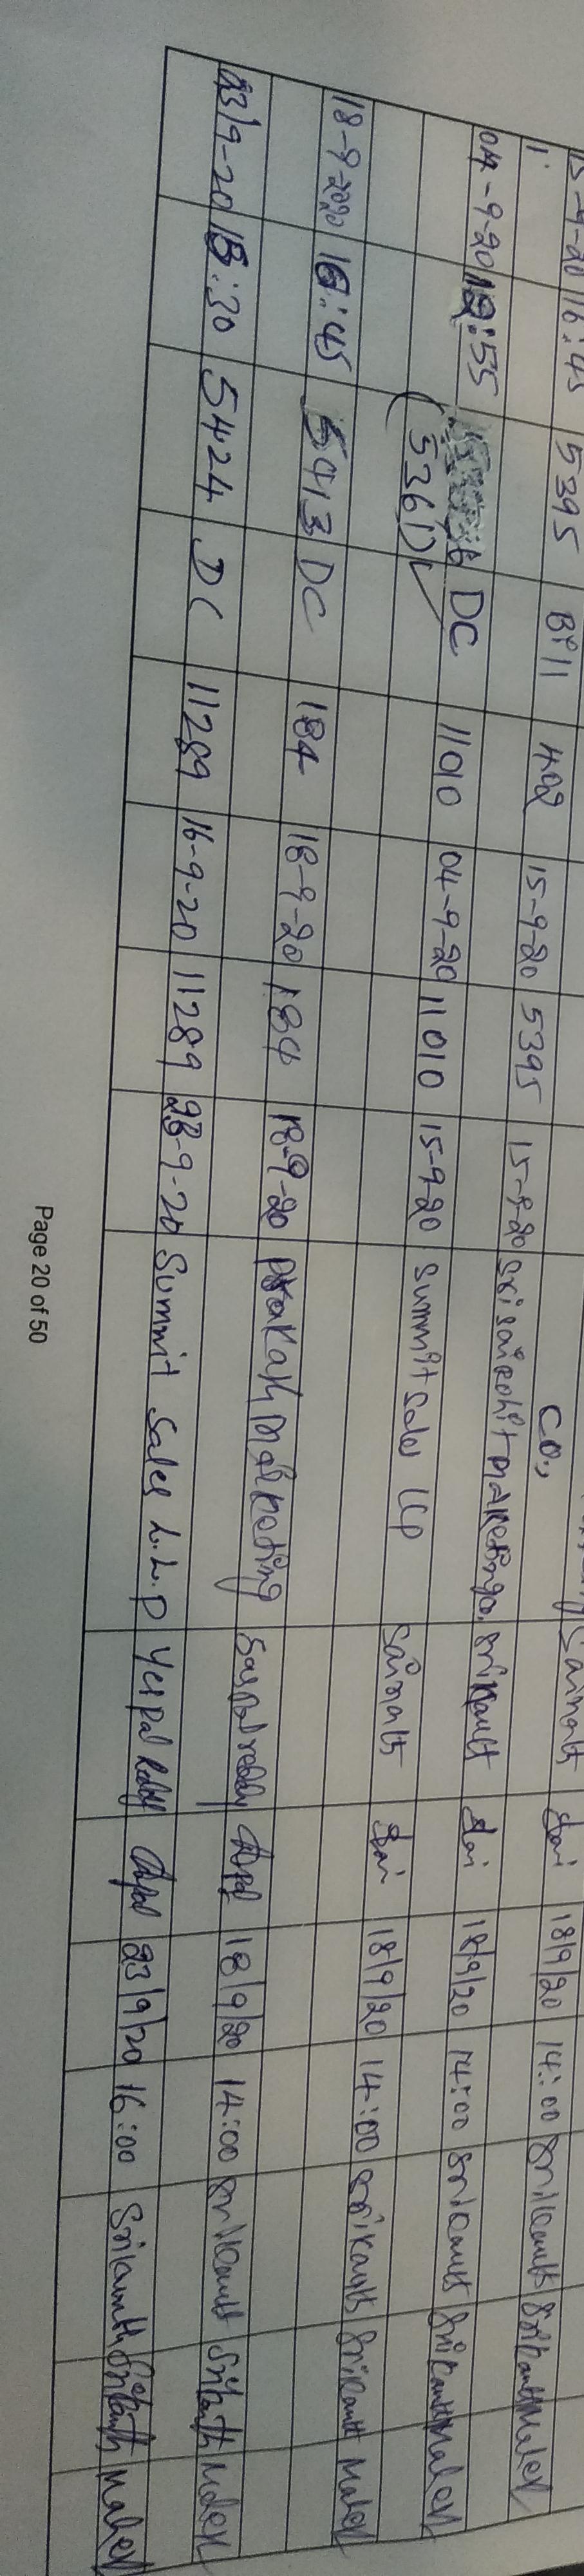 15-9-20 16:45 5395 Bill 402 15-9-20 5395 15-9-20 Sri Sai Rohit Marketing Co., Srikanth Sai 18/9/20 14:00 Srikanth Srikanth Mahesh
04-9-20 12:55 DC 11010 04-9-20 11010 15-9-20 Summit Sales LLP Sainath Sai 18/9/20 14:00 Srikanth Srikanth Mahesh
(5361)
18-9-2020 16:45 5413 DC 184 18-9-20 184 18-9-20 Prakash Marketing 18/9/20 14:00 Srikanth Srikanth Mahesh
23/9-20 15:30 5424 DC 11289 16-9-20 11289 23-9-20 Summit Sales L.L.P 23/9/20 16:00 Srikanth Srikanth Mahesh
Page 20 of 50